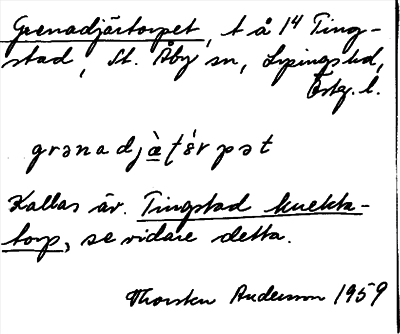 Grenadjärtorpet, t å 14 Ting-
stad, St. Åby sn, Lysings hd,
Östg. l.
grǝnadjæ̀ṭέrpǝt
Kallas äv. Tingstad knekta-
torp, se vidare detta.
Thorsten Andersson 1959